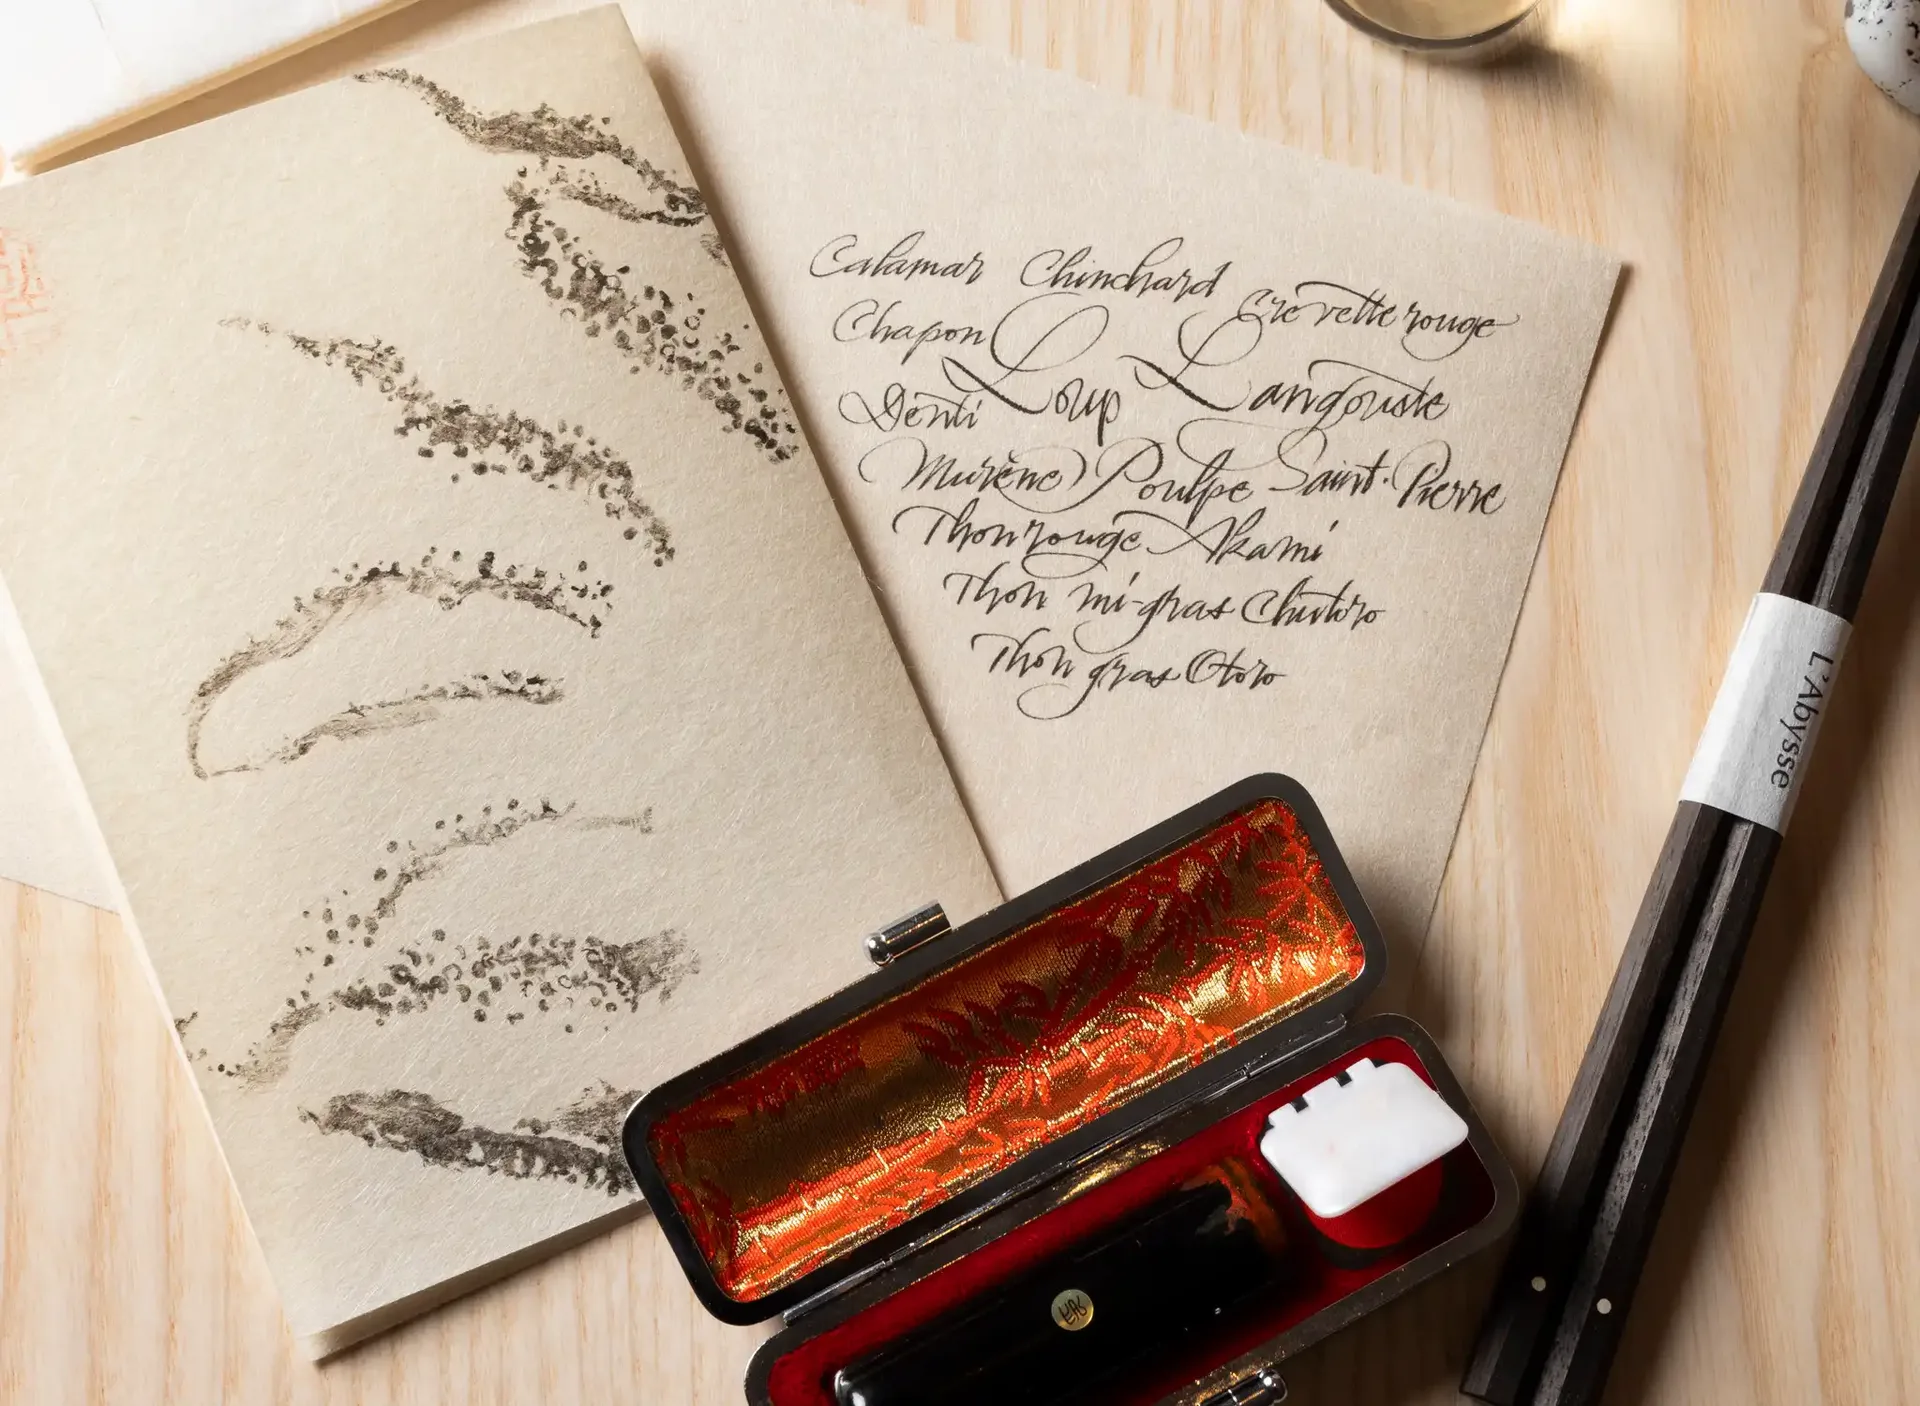 Calamar Chinchard Crevette rouge
Chapon Loup Langouste
Denti
Murène Poulpe Saint-Pierre
Thon rouge Akami
Thon mi-gras Chutoro
Thon gras Otoro
L'Abysse